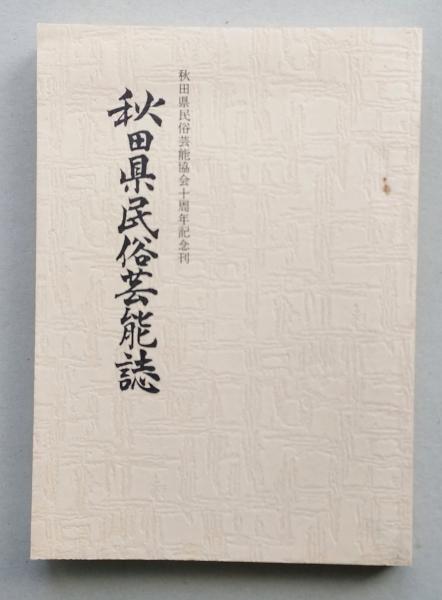 秋田県民俗芸能協会十周年記念刊
秋田県民俗芸能誌